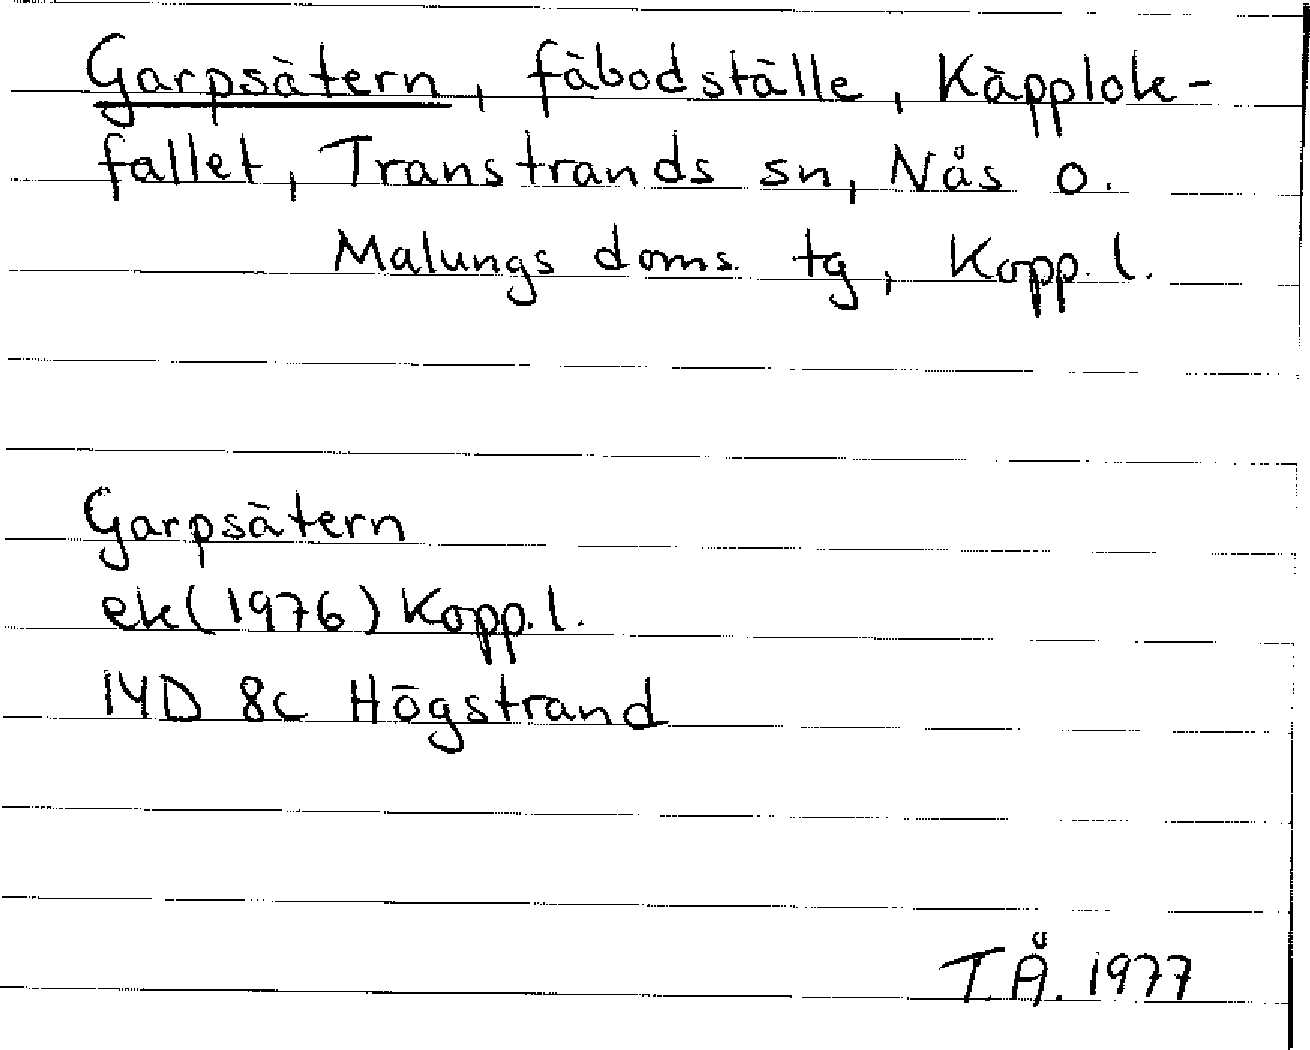 Garpsätern, fäbodställe, Käpplok-
fallet, Transtrands sn, Nås o.
Malungs doms. tg, Kopp. l.
Garpsätern
ek (1976) Kopp. l.
14D 8c Högstrand
T.Å. 1977